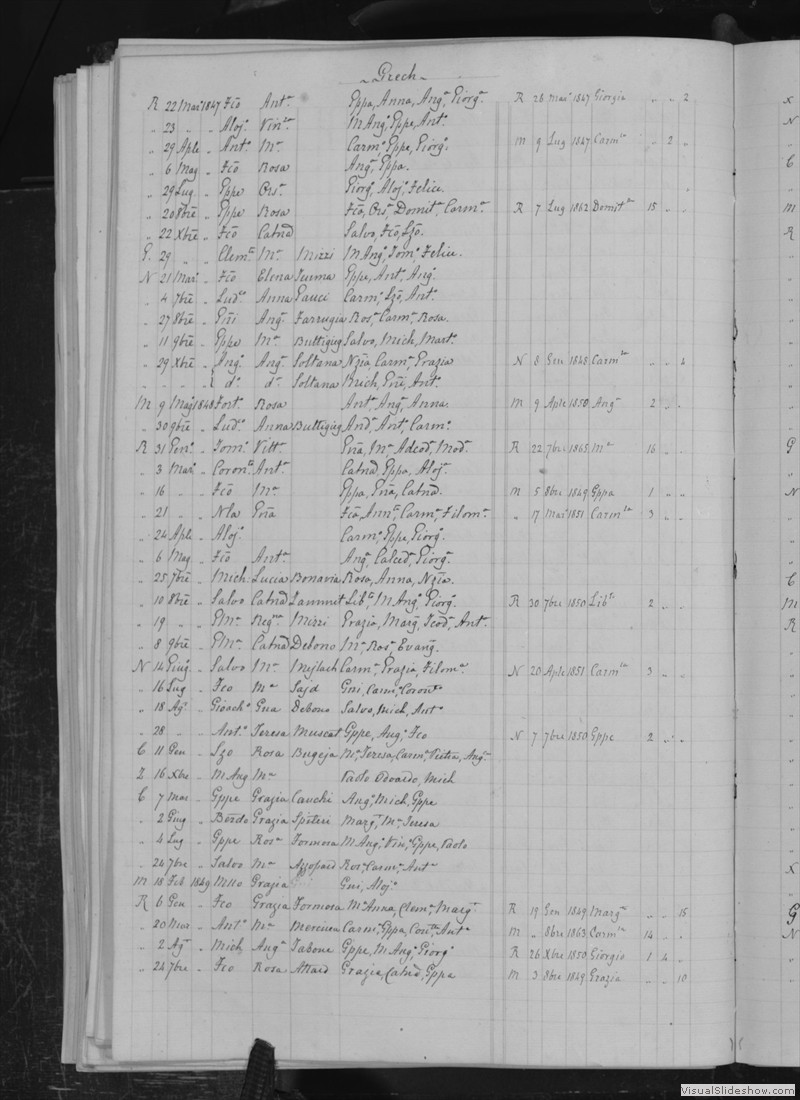 Grech
R 22 Mar: 1847 Fco Ant.a Gppa, Anna, Ang.a Giorg.a R 26 Mar: 1847 Giorgia " " 2
" 23 " " Aloj. Vin.za M Ang. Gppe, Ant.
" 29 Aple " Ant.o M.a Carm. Gppe, Giorg. M 9 Lug 1847 Carm. " 2 "
" 6 Mag " Fco Rosa Ang. Gppa.
" 29 Lug " Gppe Ors.a Giorg. Aloj. Felice.
" 20 8bre " Gppe Rosa Fco, Ors. Domit. Carm. R 7 Lug 1862 Domit. 15 " "
" 22 Xbre " Fco Catna Salvo, Fco, Lzo.
G. 29 " " Clem. M.a Mizzi M Ang. Tom. Felice.
N 21 Mar. " Fco Elena Gppe, Ant. Ang.
" 4 7bre " Lud.o Anna Gauci Carm. Lzo, Ant.
" 27 8bre " Gni Ang. Farrugia Ros. Carm. Rosa.
" 11 9bre " Gppe M.a Buttigieg Salvo, Mich, Mart.
" 29 Xbre " Ang. Ang. Soltana Nzia, Carm. Grazia N 8 Gen 1848 Carm. " " 4
" " " " d.o d.a Soltana Mich, Gni, Ant.
M 9 Mag 1848 Fort. Rosa Ant. Ang. Anna. M 9 Aple 1850 Ang. 2 " "
" 30 9bre " Lud.o Anna Buttigieg And. Ant. Carm.
R 31 Gen. " Tom. Vitt. Gna, M.a Adeod. Mod. R 22 7bre 1865 M.a 16 " "
" 3 Mar. " Coron. Ant. Catna, Gppa, Aloj.
" 16 " " Fco M.a Gppa, Gna, Catna. M 5 8bre 1849 Gppa 1 " "
" 21 " " Nla Gna Fco, Ann. Carm. Filom. " 17 Mar 1851 Carm. 3 " "
" 24 Aple " Aloj. Carm. Gppe, Giorg.
" 6 Mag " Fco Ant. Ang. Calced. Giorg.
" 25 7bre " Mich. Lucia Bonavia Rosa, Anna, Nzia.
" 10 8bre " Salvo Catna Sammut Lib. M Ang. Giorg. R 30 7bre 1850 Lib. 2 " "
" 19 " " Mizzi Grazia, Marg. Teod. Ant.
" 8 9bre " Catna Debono M. Ros. Evang.
N 14 Giug. " Salvo M.a Mejlach Carm. Grazia, Filom. N 20 Aple 1851 Carm. 3 " "
" 16 Lug " Fco M.a Sajd Gni, Carm. Coron.
" 18 Ag. " Gioach. Gna Debono Salvo, Mich, Ant.
" 28 " " Ant. Teresa Muscat Gppe, Ang. Fco N 7 7bre 1850 Gppe 2 " "
C 11 Gen " Lzo Rosa Bugeja M. Teresa, Carm. Ang.
Z 16 Xbre " M Ang M.a Paolo Odoardo, Mich
C 7 Mar " Gppe Grazia Cauchi Ang. Mich, Gppe
" 2 Giug " Grazia Spiteri Marg. M. Teresa
" 4 Lug " Gppe Ros.a Formosa M Ang. Vin. Gppe, Paolo
" 24 7bre " Salvo M.a Azzopard Ros. Carm. Ant.
M 18 Feb 1849 Grazia Gni, Aloj.
R 6 Gen " Fco Grazia Formosa M. Anna, Clem. Marg. R 19 Gen 1849 Marg. " " 15
" 20 Mar " Ant. M.a Carm. Gppa, Ant. M " 8bre 1863 Carm. 14 " "
" 2 Ag. " Mich Ang. Tabone Gppe, M Ang. Giorg. R 26 Xbre 1850 Giorgio 1 4 "
" 24 7bre " Fco Rosa Attard Grazia, Catna, Gppa M 3 8bre 1849 Grazia " " 10
VisualSlideshow.com